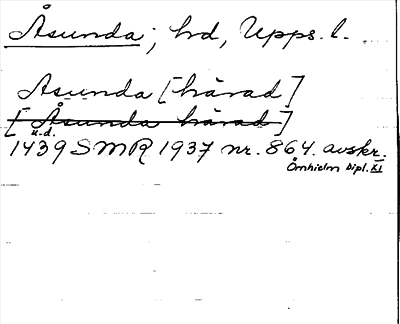 Åsunda; hd, Upps. l.
Åsunda [härad]
[Åsunda härad]
u.d.
1439 SMR 1937 nr. 864. avskr.
Örnhielm Dipl. XI